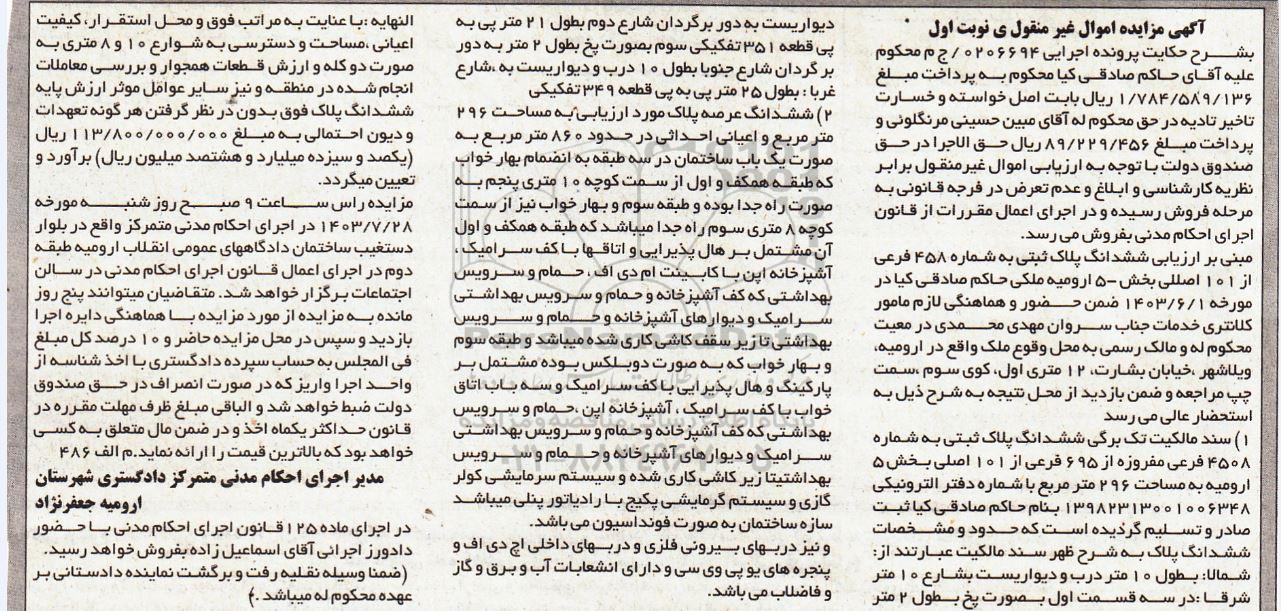 آگهی مزایده اموال غیر منقول ی نوبت اول
بشرح حکایت پرونده اجرایی ۰۲۰۶۶۹۴ / ج م محکوم
علیه آقای حاکم صادقی کیا محکوم به پرداخت مبلغ
۱/۷۸۴/۵۸۹/۱۳۶ ریال بابت اصل خواسته و خسارت
تاخیر تادیه در حق محکوم له آقای مبین حسینی مرنگلوئی و
پرداخت مبلغ ۸۹/۲۲۹/۴۵۶ ریال حق الاجرا در حق
صندوق دولت با توجه به ارزیابی اموال غیرمنقول برابر
نظریه کارشناسی و ابلاغ و عدم تعرض در فرجه قانونی به
مرحله فروش رسیده و در اجرای اعمال مقررات از قانون
اجرای احکام مدنی بفروش می رسد.
مبنی بر ارزیابی ششدانگ پلاک ثبتی به شماره ۴۵۸ فرعی
از ۱۰۱ اصللی بخش -۵ ارومیه ملکی حاکم صادقی کیا در
مورخه ۱۴۰۳/۶/۱ ضمن حضور و هماهنگی لازم مامور
کلانتری خدمات جناب سروان مهدی محمدی در معیت
محکوم له و مالک رسمی به محل وقوع ملک واقع در ارومیه،
ویلاشهر ،خیابان بشارت، ۱۲ متری اول، کوی سوم ،سمت
چپ مراجعه و ضمن بازدید از محل نتیجه به شرح ذیل به
استحضار عالی می رسد
۱) سند مالکیت تک برگی ششدانگ پلاک ثبتی به شماره
۴۵۰۸ فرعی مفروزه از ۶۹۵ فرعی از ۱۰۱ اصلی بخش ۵
ارومیه به مساحت ۲۹۶ متر مربع با شماره دفتر الترونیکی
۱۳۹۸۲۳۱۳۰۰۱۰۰۶۳۴۸ بنام حاکم صادقی کیا ثبت
صادر و تسلیم گردیده است که حدود و مشخصات
ششدانگ پلاک به شرح ظهر سند مالکیت عبارتند از:
شمالا: بطول ۱۰ متر درب و دیواریست بشارع ۱۰ متر
شرقا :در سه قسمت اول بصورت پخ بطول ۲ متر
دیواریست به دور برگردان شارع دوم بطول ۲۱ متر پی به
پی قطعه ۳۵۱ تفکیکی سوم بصورت پخ بطول ۲ متر به دور
بر گردان شارع جنوبا بطول ۱۰ درب و دیواریست به ،شارع
غربا : بطول ۲۵ متر پی به پی قطعه ۳۴۹ تفکیکی
۲) ششدانگ عرصه پلاک مورد ارزیابی به مساحت ۲۹۶
متر مربع و اعیانی احداثی در حدود ۸۶۰ متر مربع به
صورت یک باب ساختمان در سه طبقه به انضمام بهار خواب
که طبقه همکف و اول از سمت کوچه ۱۰ متری پنجم به
صورت راه جدا بوده و طبقه سوم و بهار خواب نیز از سمت
کوچه ۸ متری سوم راه جدا میباشد که طبقه همکف و اول
آن مشتمل بر هال پذیرایی و اتاقها با کف سرامیک ،
آشپزخانه اپن با کابینت ام دی اف ، حمام و سرویس
بهداشتی که کف آشپزخانه و حمام و سرویس بهداشتی
سرامیک و دیوارهای آشپزخانه و حمام و سرویس
بهداشتی تا زیر سقف کاشی کاری شده میباشد و طبقه سوم
و بهار خواب که به صورت دوبلکس بوده مشتمل بر
پارکینگ و هال پذیرایی با کف سرامیک و سه باب اتاق
خواب با کف سرامیک ، آشپزخانه اپن ،حمام و سرویس
بهداشتی که کف آشپزخانه و حمام و سرویس بهداشتی
سرامیک و دیوارهای آشپزخانه و حمام و سرویس
بهداشتیتا زیر کاشی کاری شده و سیستم سرمایشی کولر
گازی و سیستم گرمایشی پکیج با رادیاتور پنلی میباشد
سازه ساختمان به صورت فونداسیون می باشد.
و نیز دربهای بیرونی فلزی و دربهای داخلی اچ دی اف و
پنجره های یو پی وی سی و دارای انشعابات آب و برق و گاز
و فاضلاب می باشد.
النهایه :با عنایت به مراتب فوق و محل استقرار، کیفیت
اعیانی ،مساحت و دسترسی به شوارع ۱۰ و ۸ متری به
صورت دو کله و ارزش قطعات همجوار و بررسی معاملات
انجام شده در منطقه و نیز سایر عوامل موثر ارزش پایه
ششدانگ پلاک فوق بدون در نظر گرفتن هر گونه تعهدات
و دیون احتمالی به مبلغ ۱۱۳/۸۰۰/۰۰۰/۰۰۰ ریال
(یکصد و سیزده میلیارد و هشتصد میلیون ریال) برآورد و
تعیین میگردد.
مزایده راس ساعت ۹ صبح روز شنبه مورخه
۱۴۰۳/۷/۲۸ در اجرای احکام مدنی متمرکز واقع در بلوار
دستغیب ساختمان دادگاههای عمومی انقلاب ارومیه طبقه
دوم در اجرای اعمال قانون اجرای احکام مدنی در سالن
اجتماعات برگزار خواهد شد. متقاضیان میتوانند پنج روز
مانده به مزایده از مورد مزایده با هماهنگی دایره اجرا
بازدید و سپس در محل مزایده حاضر و ۱۰ درصد کل مبلغ
فی المجلس به حساب سپرده دادگستری با اخذ شناسه از
واحد اجرا واریز که در صورت انصراف در حق صندوق
دولت ضبط خواهد شد و الباقی مبلغ ظرف مهلت مقرره در
قانون حداکثر یکماه اخذ و در ضمن مال متعلق به کسی
خواهد بود که بالاترین قیمت را ارائه نماید.م الف ۴۸۶
مدیر اجرای احکام مدنی متمرکز دادگستری شهرستان
ارومیه جعفرنژاد
در اجرای ماده ۱۲۵ قانون اجرای احکام مدنی با حضور
دادورز اجرائی آقای اسماعیل زاده بفروش خواهد رسید.
(ضمنا وسیله نقلیه رفت و برگشت نماینده دادستانی بر
عهده محکوم له میباشد .)
ParsNamadData